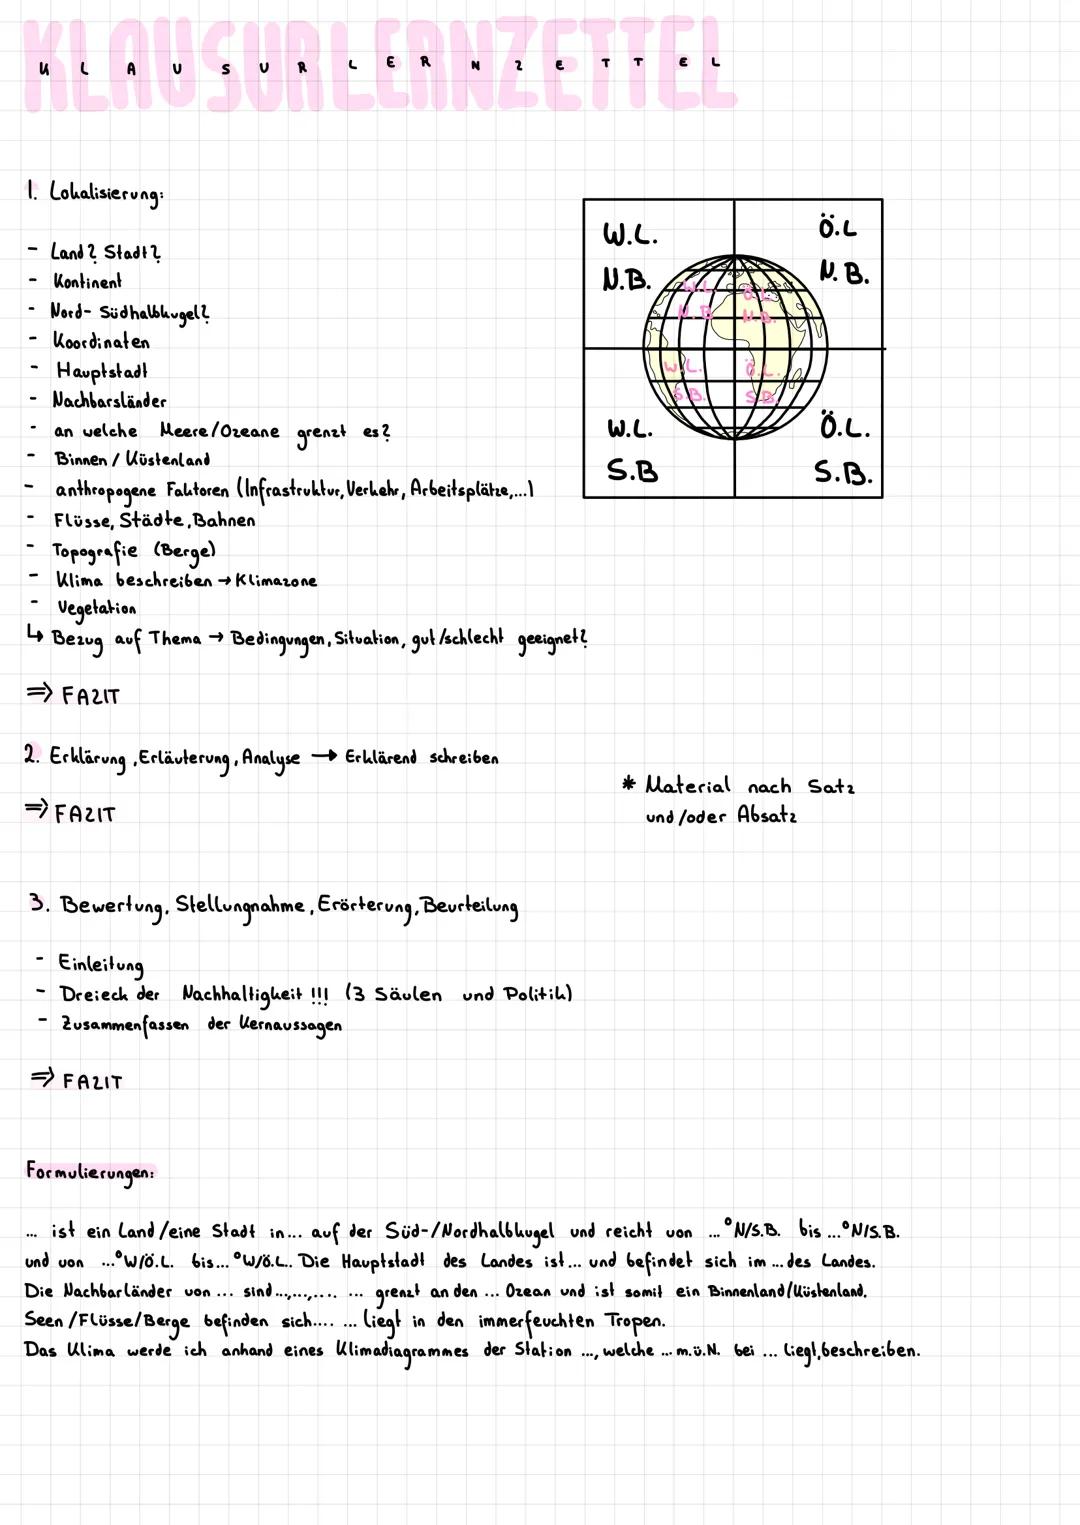 KLAUSURLERNZETTEL
KLAUSURLERNZETTEL
1. Lokalisierung:
- Land? Stadt?
- Kontinent
- Nord- Südhalbkugel?
- Koordinaten
- Hauptstadt
- Nachbarsländer
- an welche Meere/Ozeane grenzt es?
- Binnen / Küstenland
- anthropogene Faktoren (Infrastruktur, Verkehr, Arbeitsplätze,...)
- Flüsse, Städte, Bahnen
- Topografie (Berge)
- Klima beschreiben → Klimazone
- Vegetation
↳ Bezug auf Thema → Bedingungen, Situation, gut/schlecht geeignet?
⇒ FAZIT
W.L.
N.B.
Ö.L
N.B.
W.L.
N.B.
Ö.L.
N.B.
W.L.
S.B.
Ö.L.
S.B.
W.L.
S.B
Ö.L.
S.B.
2. Erklärung, Erläuterung, Analyse → Erklärend schreiben
⇒ FAZIT
* Material nach Satz
und/oder Absatz
3. Bewertung, Stellungnahme, Erörterung, Beurteilung
- Einleitung
- Dreieck der Nachhaltigkeit !!! (3 Säulen und Politik)
- Zusammenfassen der Kernaussagen
⇒ FAZIT
Formulierungen:
... ist ein Land/eine Stadt in... auf der Süd-/Nordhalbkugel und reicht von ...°N/S.B. bis ...°N/S.B.
und von ...°W/Ö.L. bis... °W/Ö.L.. Die Hauptstadt des Landes ist... und befindet sich im ... des Landes.
Die Nachbarländer von ... sind ...,...,.... ... grenzt an den ... Ozean und ist somit ein Binnenland/Küstenland.
Seen/Flüsse/Berge befinden sich.... ... liegt in den immerfeuchten Tropen.
Das Klima werde ich anhand eines Klimadiagrammes der Station ..., welche ... m.ü.N. bei ... liegt, beschreiben.